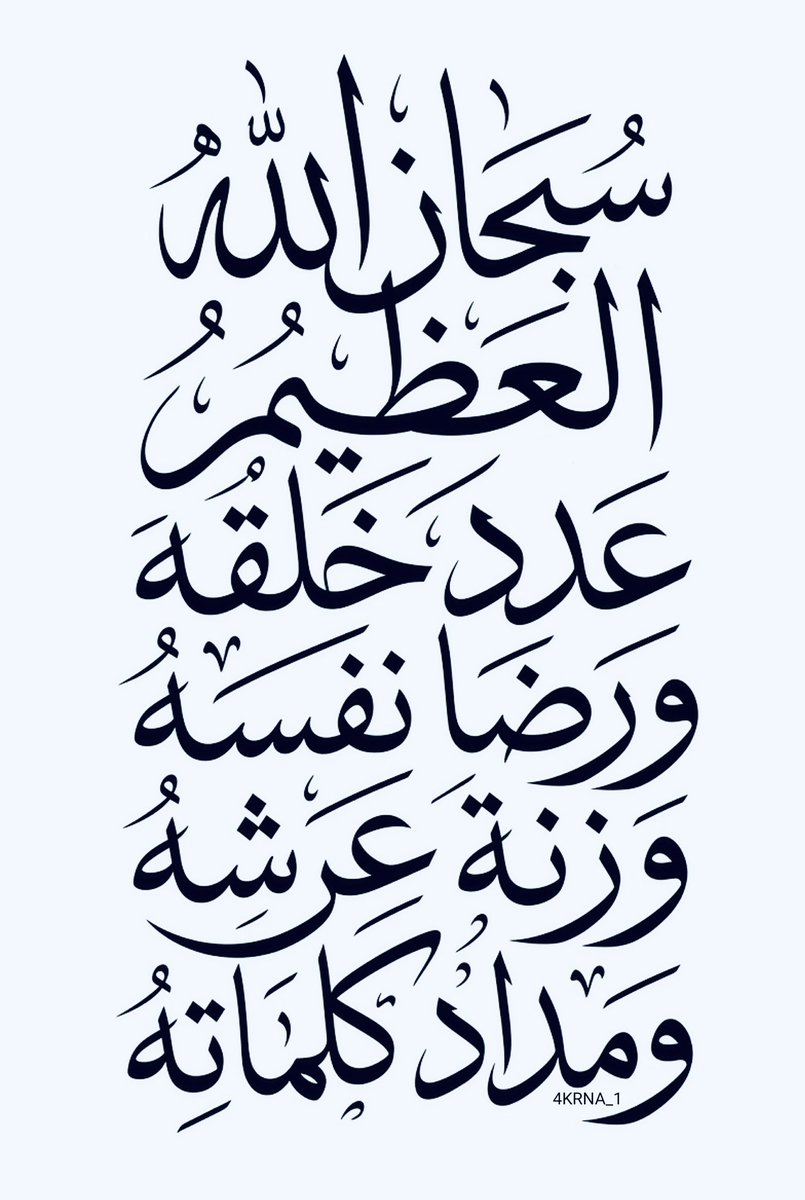 سُبْحَانَ اللّٰهُ
العَظِيْمُ
عَدَدَ خَلْقُهَ
وَرَضَا نفسَهُ
وَزنةَ عَرْشِهُ
وَمَدادُ كَلِمَاتِهُ
4KRNA_1